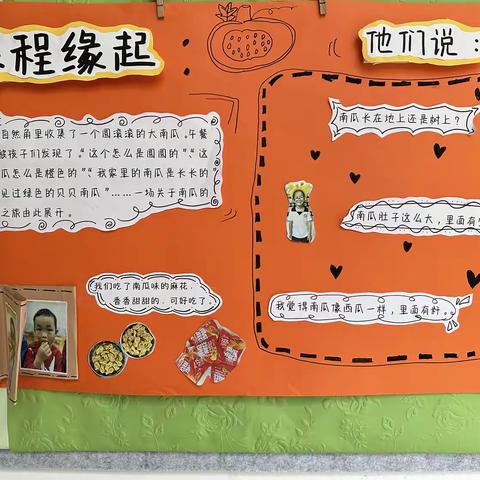 程缘起
自然角里收集了一个圆滚滚的大南瓜。午餐
被孩子们发现了。“这个怎么是圆圆的”、“这
瓜怎么是橙色的”“我家里的南瓜是长长的”
见过绿色的贝贝南瓜”……一场关于南瓜的
之旅由此展开。
我们吃了南瓜味的麻花，
香香甜甜的，可好吃了。
他们说：
南瓜长在地上还是树上？
南瓜肚子这么大，里面有
我觉得南瓜像西瓜一样，里面有籽。